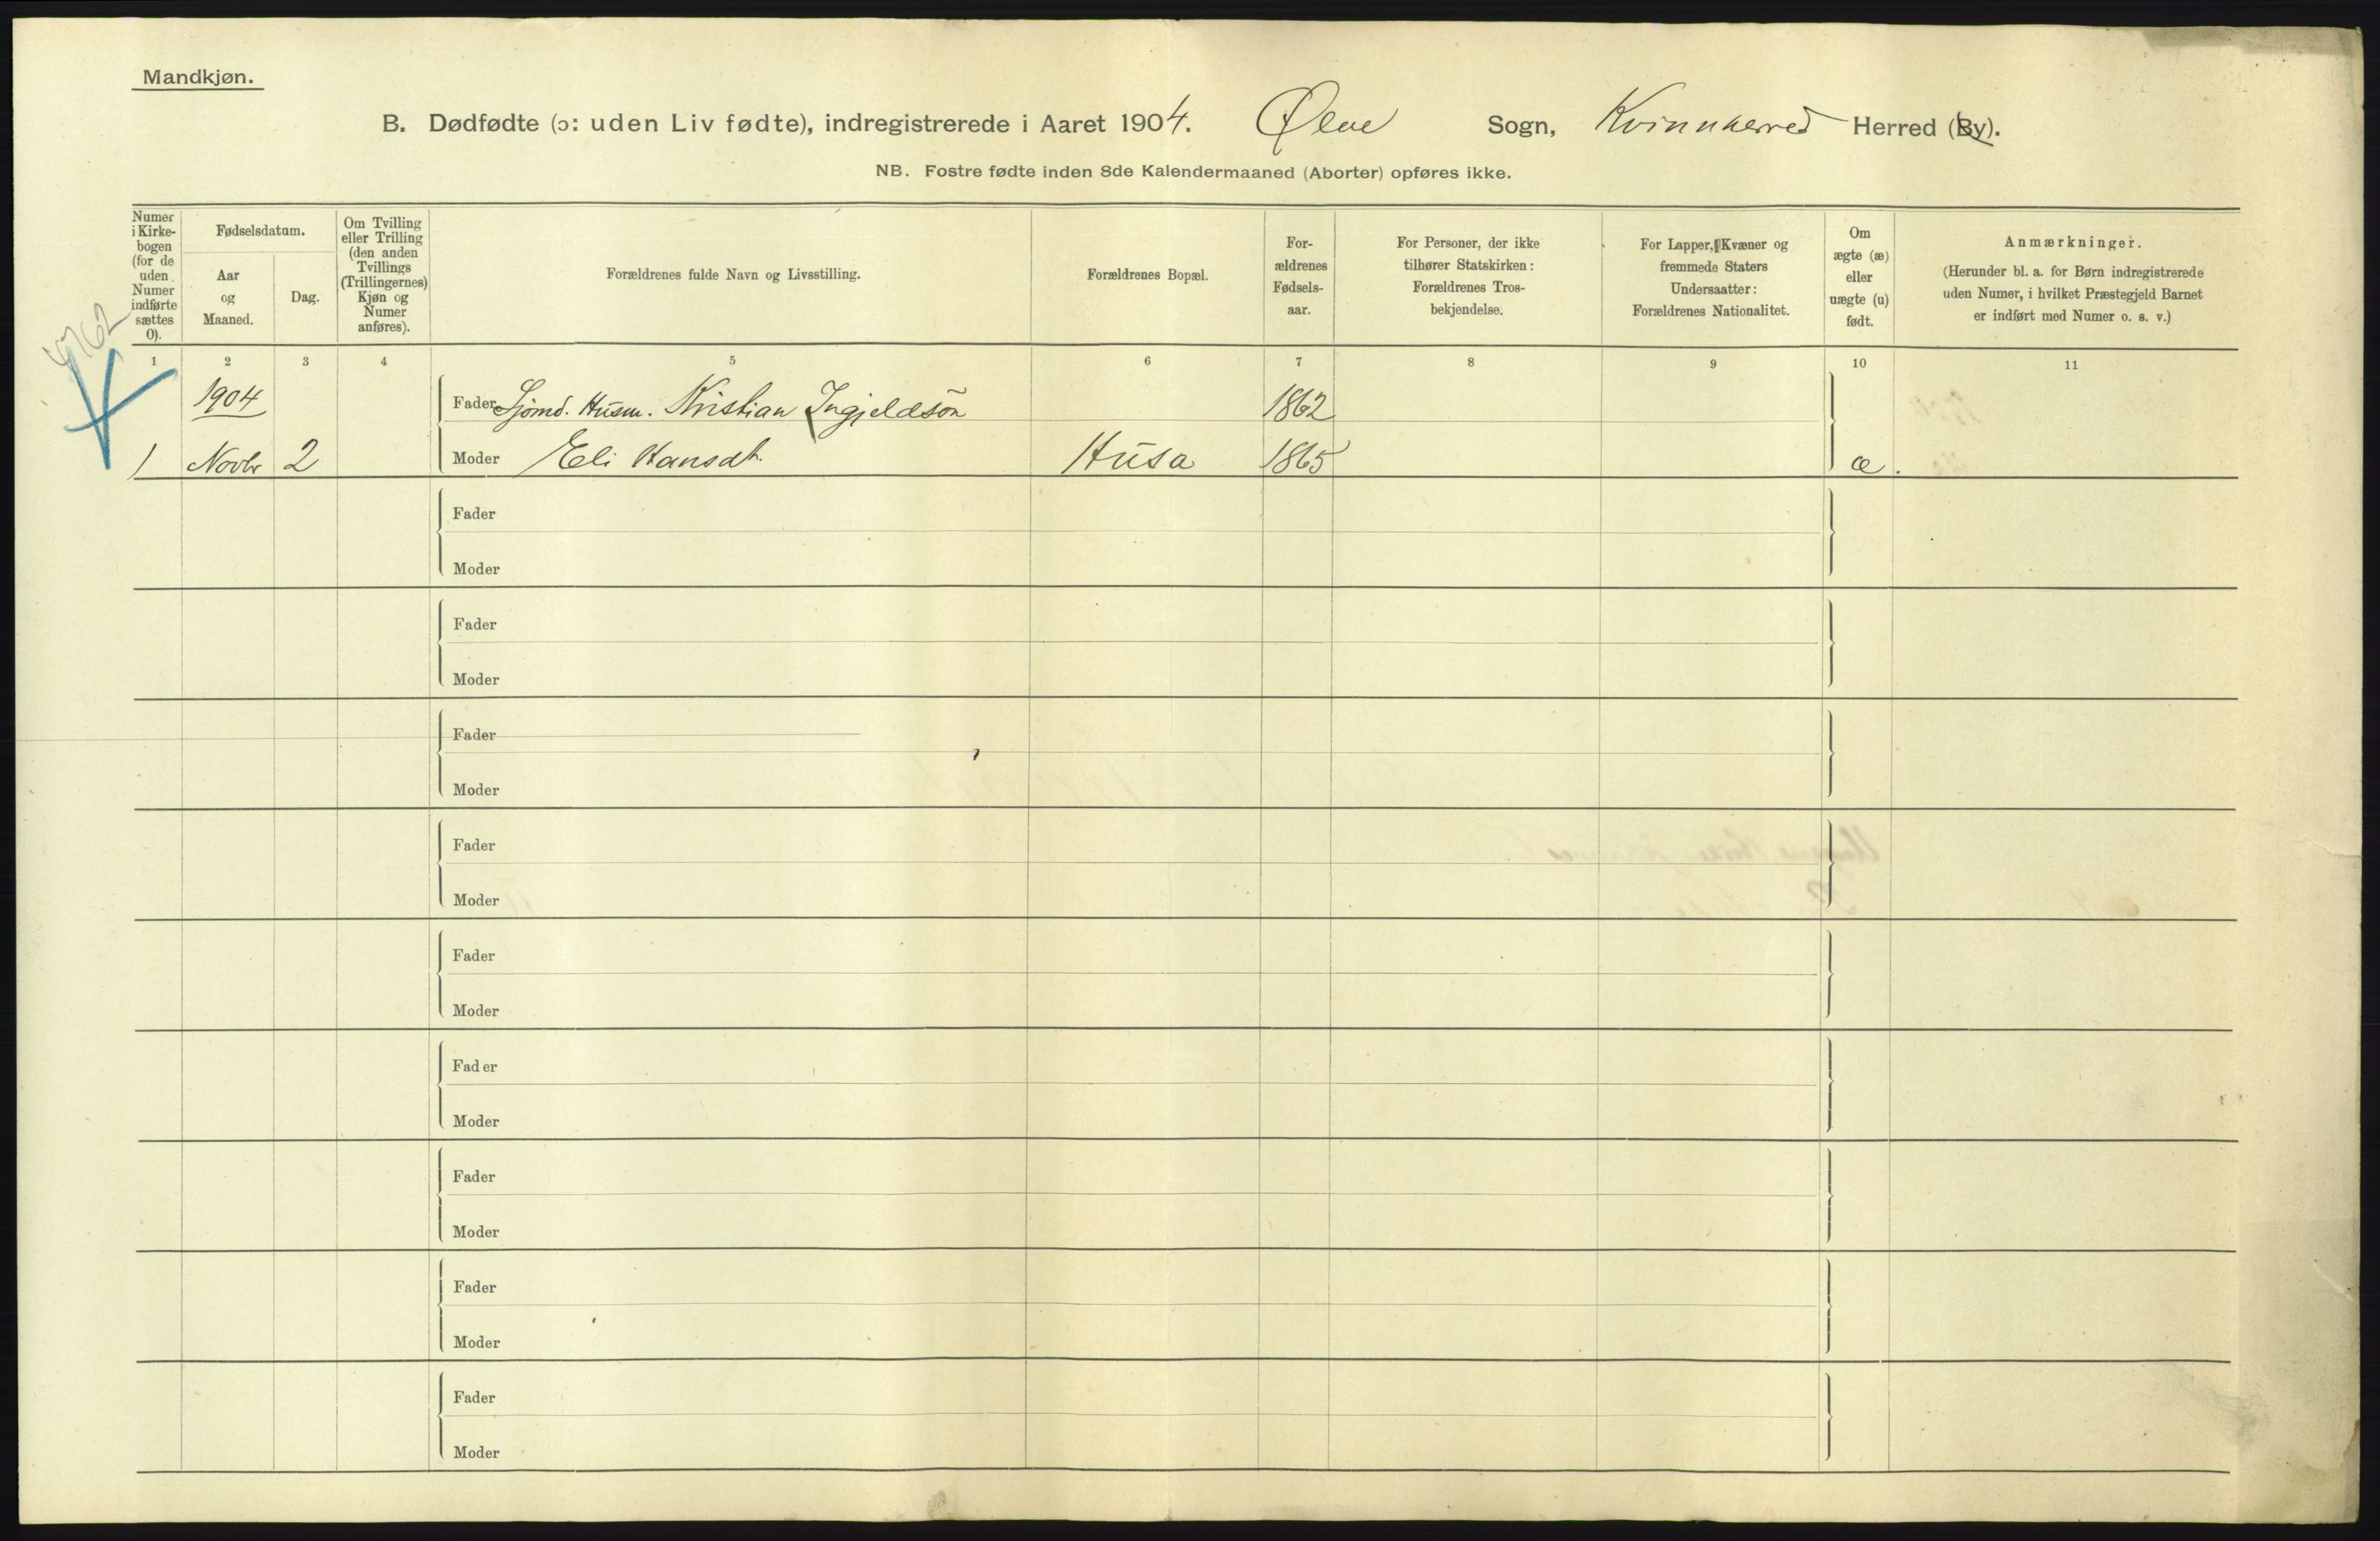 Mandkjøn.
B. Dødfødte (ɔ: uden Liv fødte), indregistrerede i Aaret 1904. Ølve Sogn, Kvinnherred Herred (By).
NB. Fostre fødte inden 8de Kalendermaaned (Aborter) opføres ikke.
Numer
i Kirke-
bogen
(for de
uden
Numer
indførte
sættes
0).
Fødselsdatum.
Aar
og
Maaned.
Dag.
Om Tvilling
eller Trilling
(den anden
Tvillings
(Trillingernes)
Kjøn og
Numer
anføres).
Forældrenes fulde Navn og Livsstilling.
Forældrenes Bopæl.
For-
ældrenes
Fødsels-
aar.
For Personer, der ikke
tilhører Statskirken:
Forældrenes Tros-
bekjendelse.
For Lapper, Kvæner og
fremmede Staters
Undersaatter:
Forældrenes Nationalitet.
Om
ægte (æ)
eller
uægte (u)
født.
Anmærkninger.
(Herunder bl. a. for Børn indregistrerede
uden Numer, i hvilket Præstegjeld Barnet
er indført med Numer o. s. v.)
1 2 3 4 5 6 7 8 9 10 11
1904 Fader Sjömd. Husm. Kristian Ingjeldsön 1862
1 Novbr 2 Moder Eli Hansdt. Husa 1865 æ.
Fader
Moder
Fader
Moder
Fader
Moder
Fader
Moder
Fader
Moder
Fader
Moder
Fader
Moder
Fader
Moder
Fader
Moder